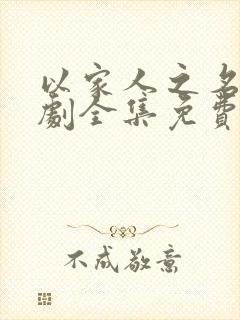 以家人之名
劇全集免費
不成敬意